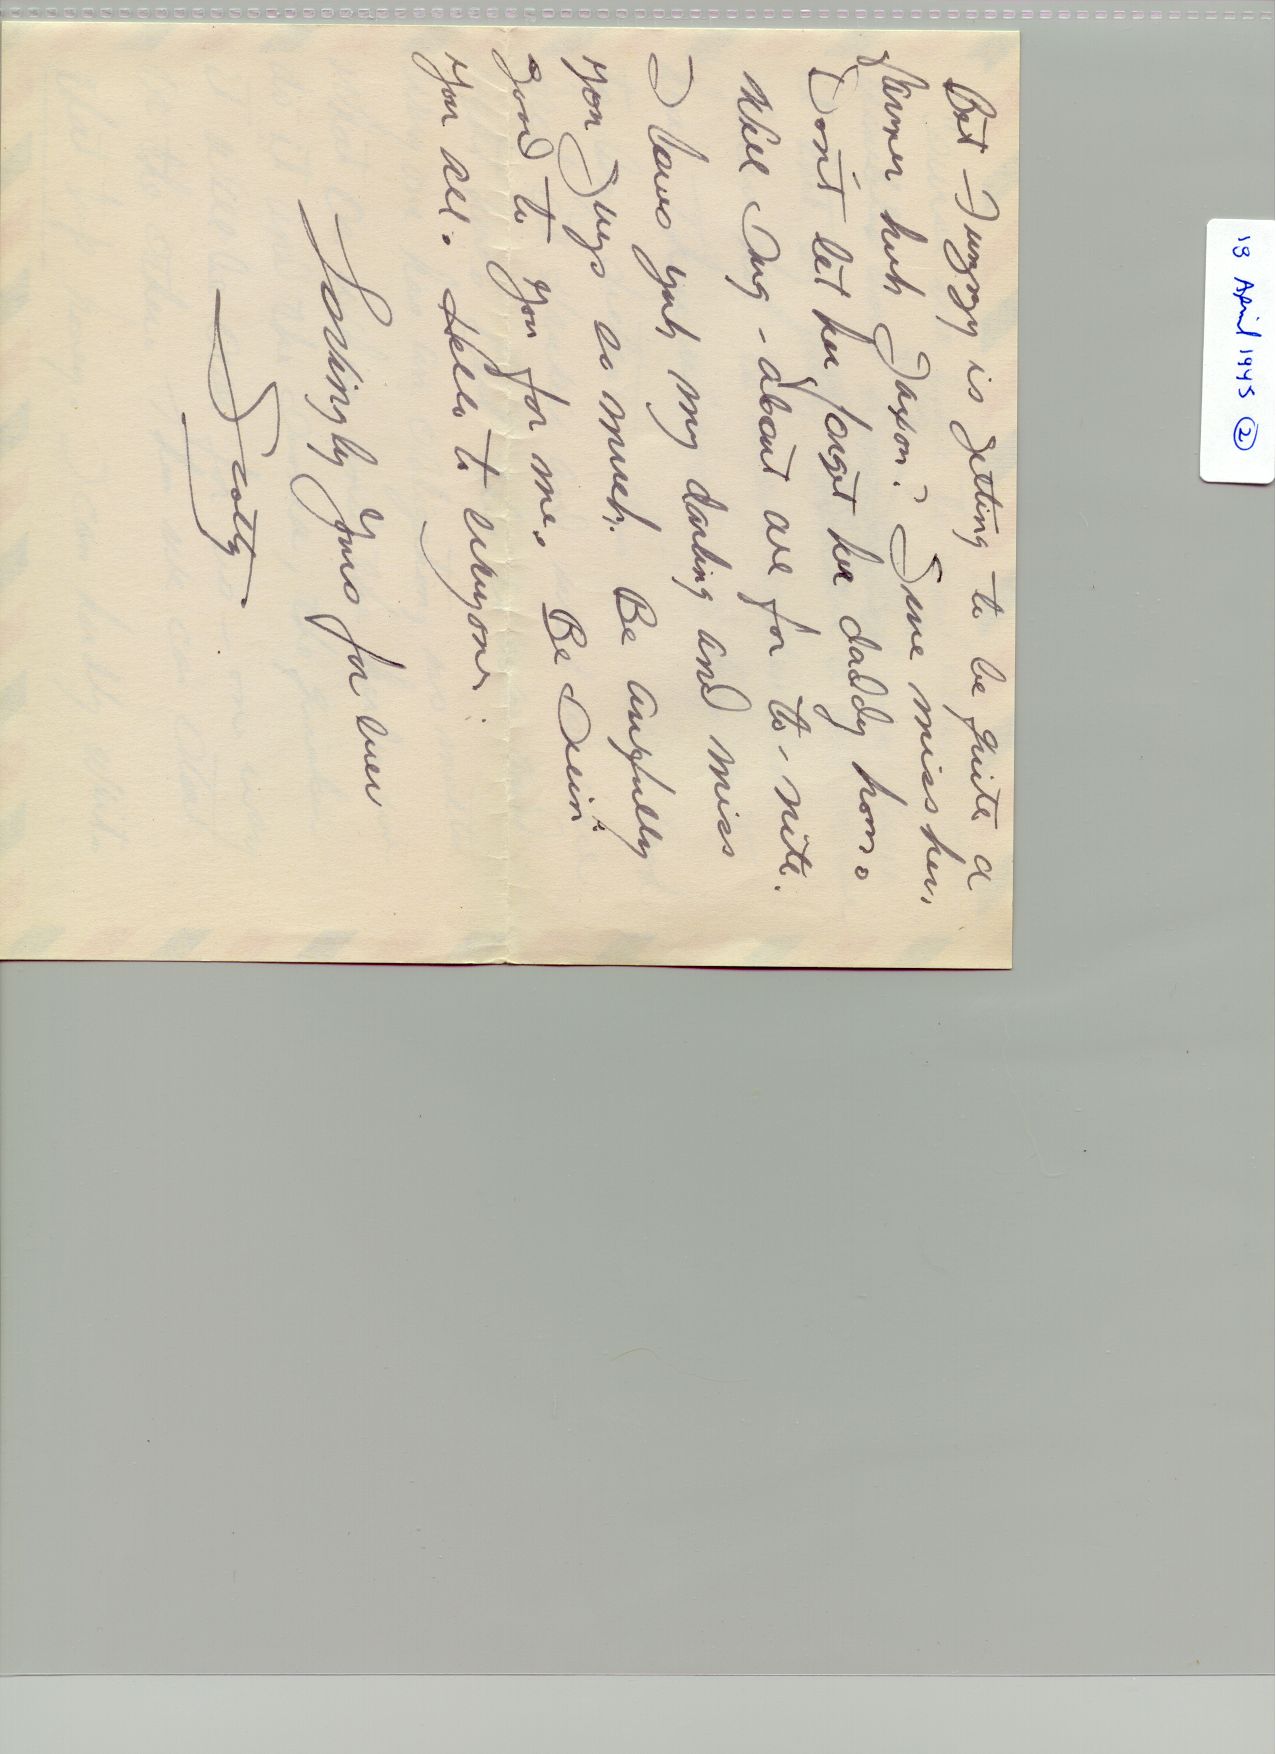 18 April 1945 ②
Bet Fuzzy is getting to be quite a
huh Jaxon? Sure miss her.
Don't let her forget her daddy hon.
Well Jug - about all for to-nite.
I loves yuh my darling and miss
you Jugs so much. Be awfully
good to you for me. Be
you all. Hello to everyone.
Lovingly Yours for ever
Scotty